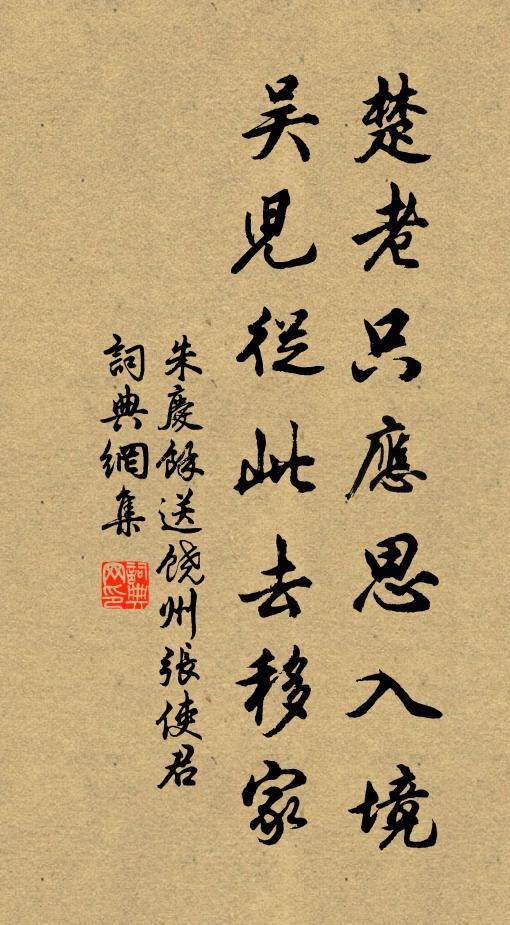 楚老只應思入境
吳兒從此去移家
朱慶餘送饒州張使君
詞典網集
詞典網印